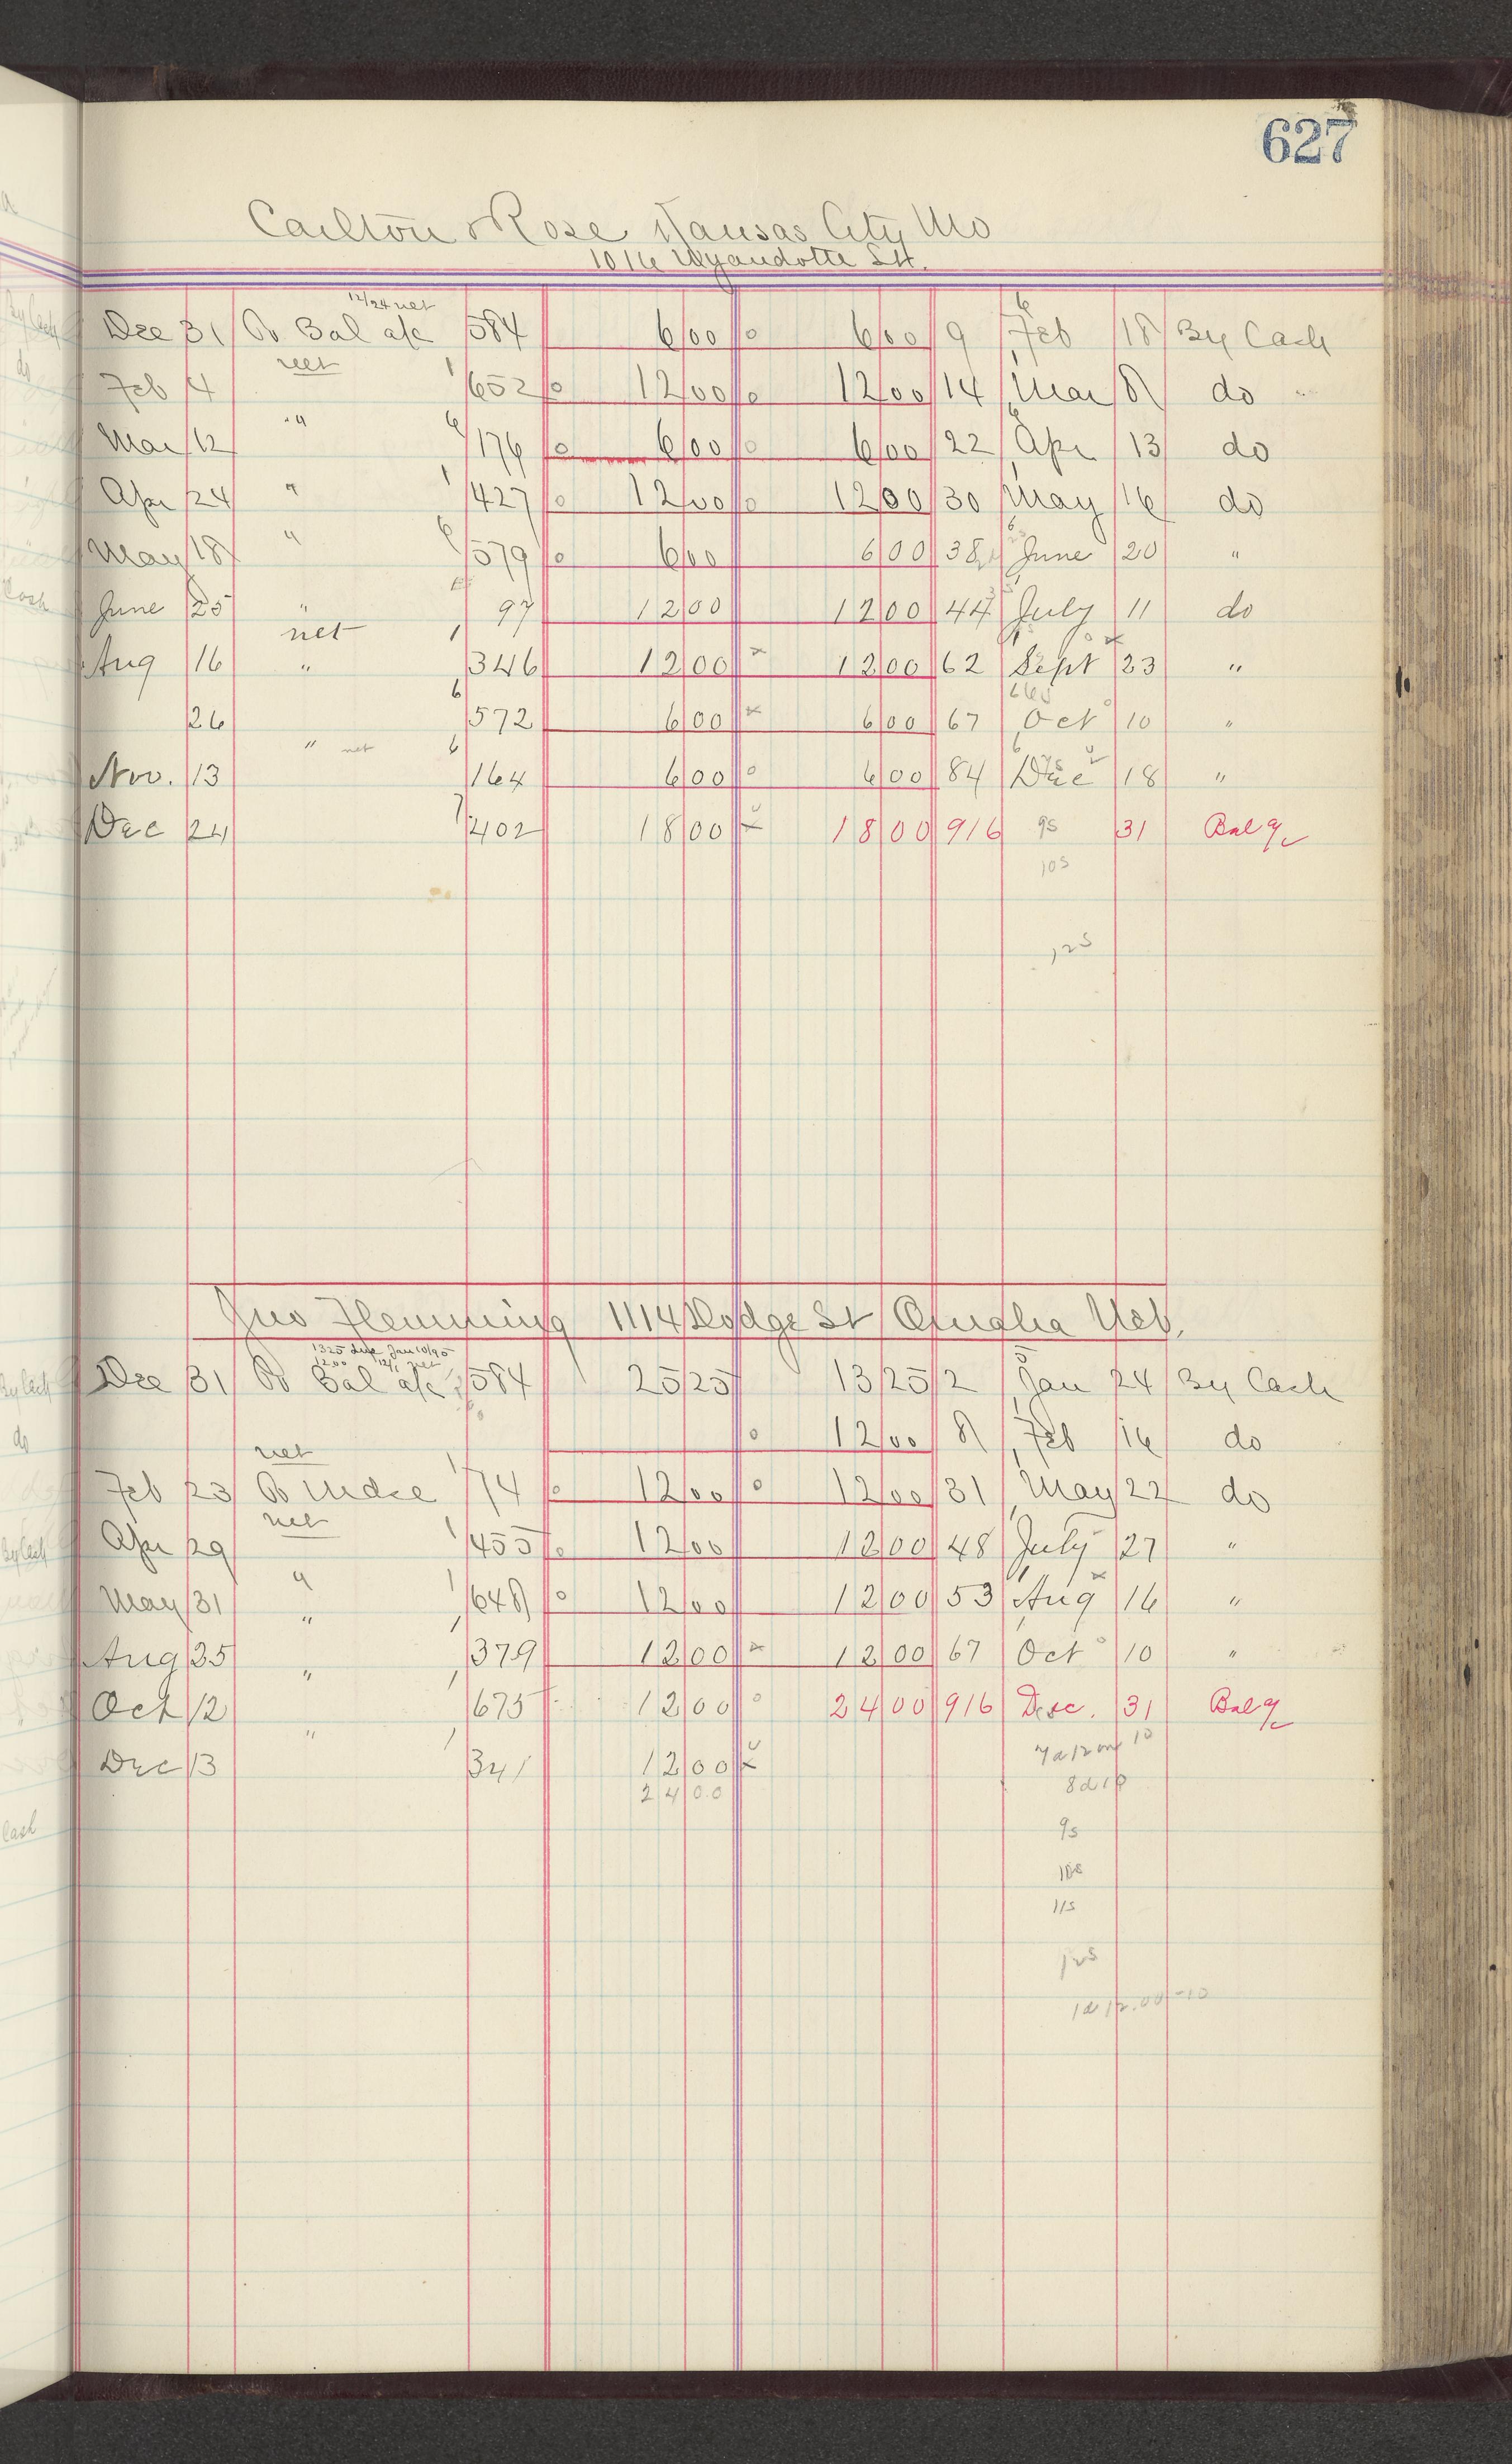 627
Carlton & Rose Kansas City Mo
1016 Wyandotte St.
12/24 net
Dec 31 To Bal a/c 584 6 00 6 00 9 Feb 18 By Cash
net
Feb 4 652 12 00 12 00 14 Mar 8 do
Mar 12 " 176 6 00 6 00 22 Apr 13 do
Apr 24 " 427 12 00 12 00 30 May 16 do
May 18 " 579 6 00 6 00 38 June 20 "
June 25 " 97 12 00 12 00 44 July 11 do
net
Aug 16 " 346 12 00 12 00 62 Sept 23 "
26 572 6 00 6 00 67 Oct 10 "
" net
Nov. 13 164 6 00 6 00 84 Dec 18 "
Dec 24 402 18 00 18 00 916 9s 31 Bal
10s
12s
Jno Flemming 1114 Dodge St Omaha Neb.
1325 due Jan 10/95
1200 12/1 net
Dec 31 To Bal a/c 584 25 25 13 25 2 Jan 24 By Cash
12 00 8 Feb 16 do
net
Feb 23 To Mdse 74 12 00 12 00 31 May 22 do
net
Apr 29 455 12 00 12 00 48 July 27 "
May 31 " 648 12 00 12 00 53 Aug 16 "
"
Aug 25 379 12 00 12 00 67 Oct 10 "
"
Oct 12 675 12 00 24 00 916 Dec. 31 Bal
"
Dec 13 341 12 00
24 00
9s
10s
11s
12s